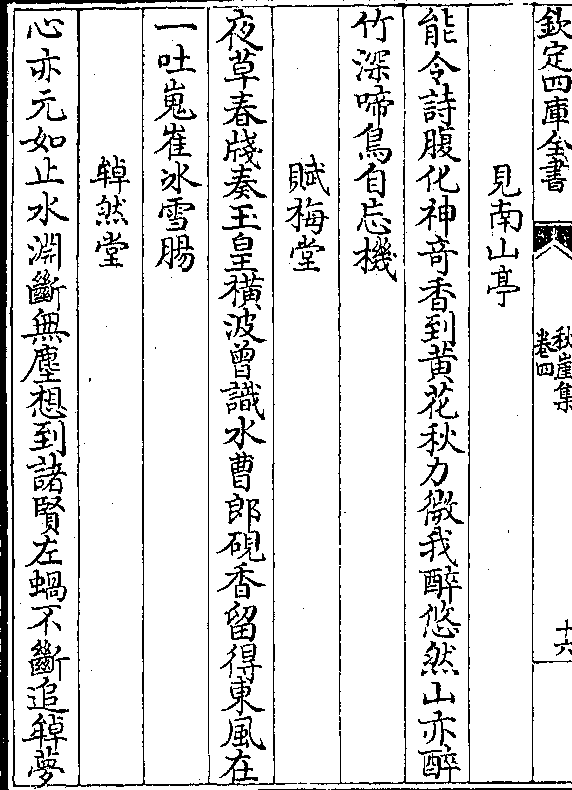 欽定四庫全書
秋崖集
卷四
十六
見南山亭
能令詩腹化神竒香到黄花秋力微我醉悠然山亦醉
竹深啼鳥自忘機
賦梅堂
夜草春牋奏玉皇横波曾識水曹郎硯香留得東風在
一吐嵬崔冰雪腸
皣然堂
心亦元如止水淵斷無塵想到諸賢左蝸不斷追皣夢